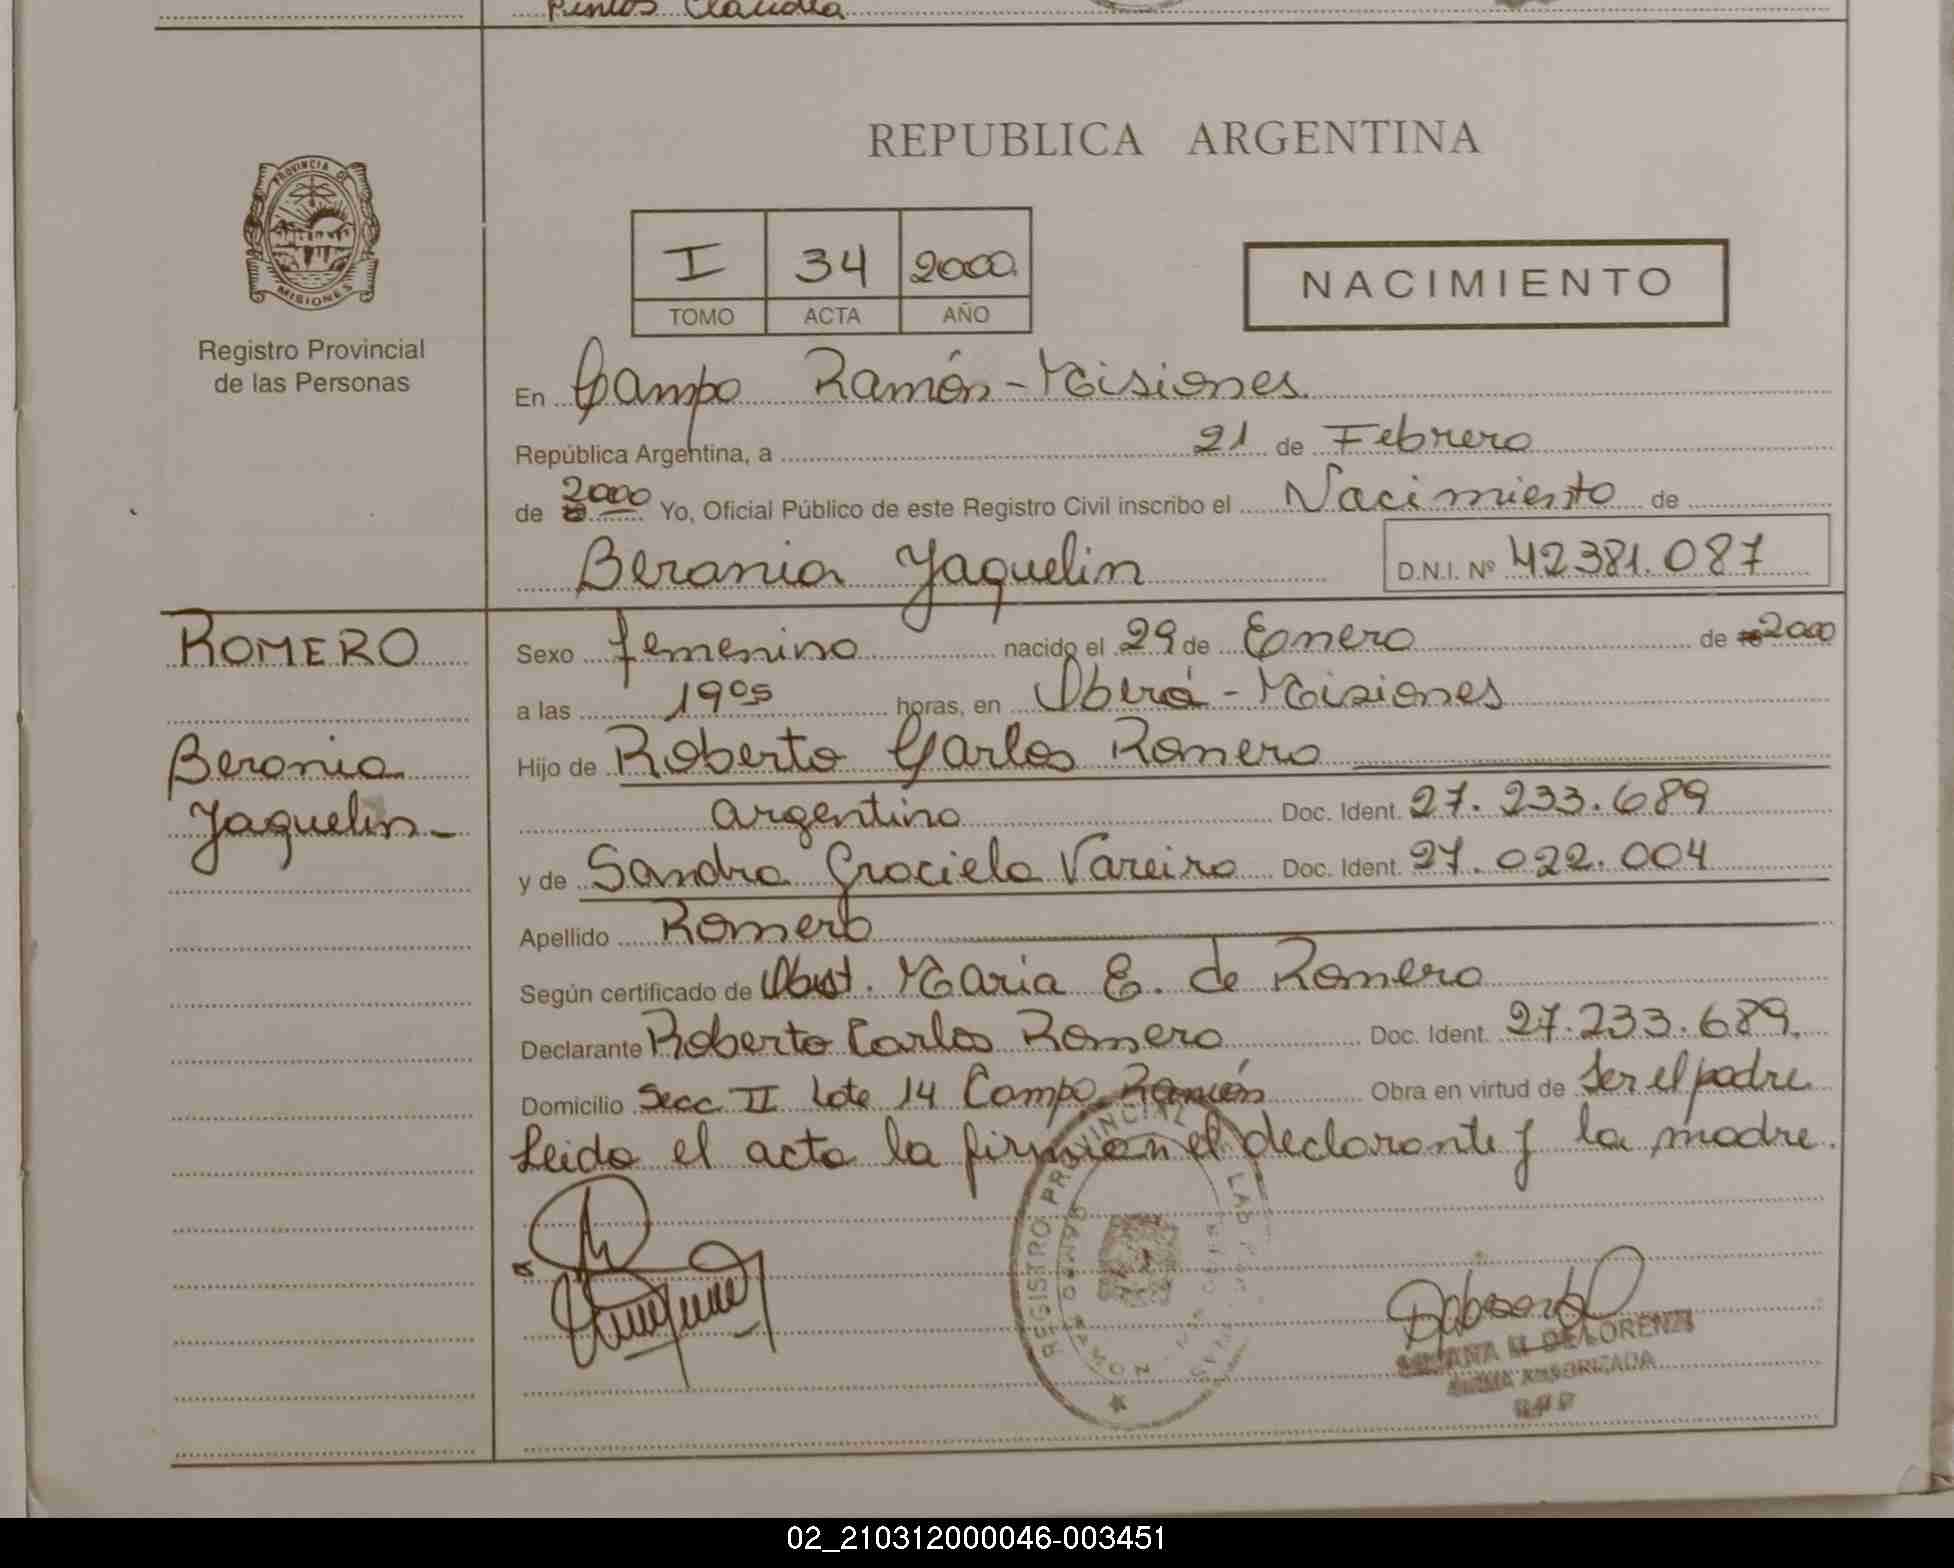 Pintos Claudia
REPUBLICA ARGENTINA
PROVINCIA DE
MISIONES
Registro Provincial
de las Personas
I 34 2000
TOMO ACTA AÑO
NACIMIENTO
En Campo Ramón - Misiones
República Argentina, a 21 de Febrero
de 2000 Yo, Oficial Público de este Registro Civil inscribo el Nacimiento de
Berania Yaquelin
D.N.I. Nº 42381.087
ROMERO
Berania
Yaquelin -
Sexo femenino nacido el 29 de Enero de 2000
a las 19 05 horas, en Oberá - Misiones
Hijo de Roberto Carlos Romero
argentino Doc. Ident. 27.233.689
y de Sandra Graciela Vareiro Doc. Ident. 27.022.004
Apellido Romero
Según certificado de Obst. Maria E. de Romero
Declarante Roberto Carlos Romero Doc. Ident. 27.233.689.
Domicilio Secc II Lote 14 Campo Ramón Obra en virtud de Ser el padre
Leida el acta la firman el declarante y la madre.
REGISTRO PROVINCIAL
CAMPO RAMON
DE LORENZI
FIRMA AUTORIZADA
02_210312000046-003451